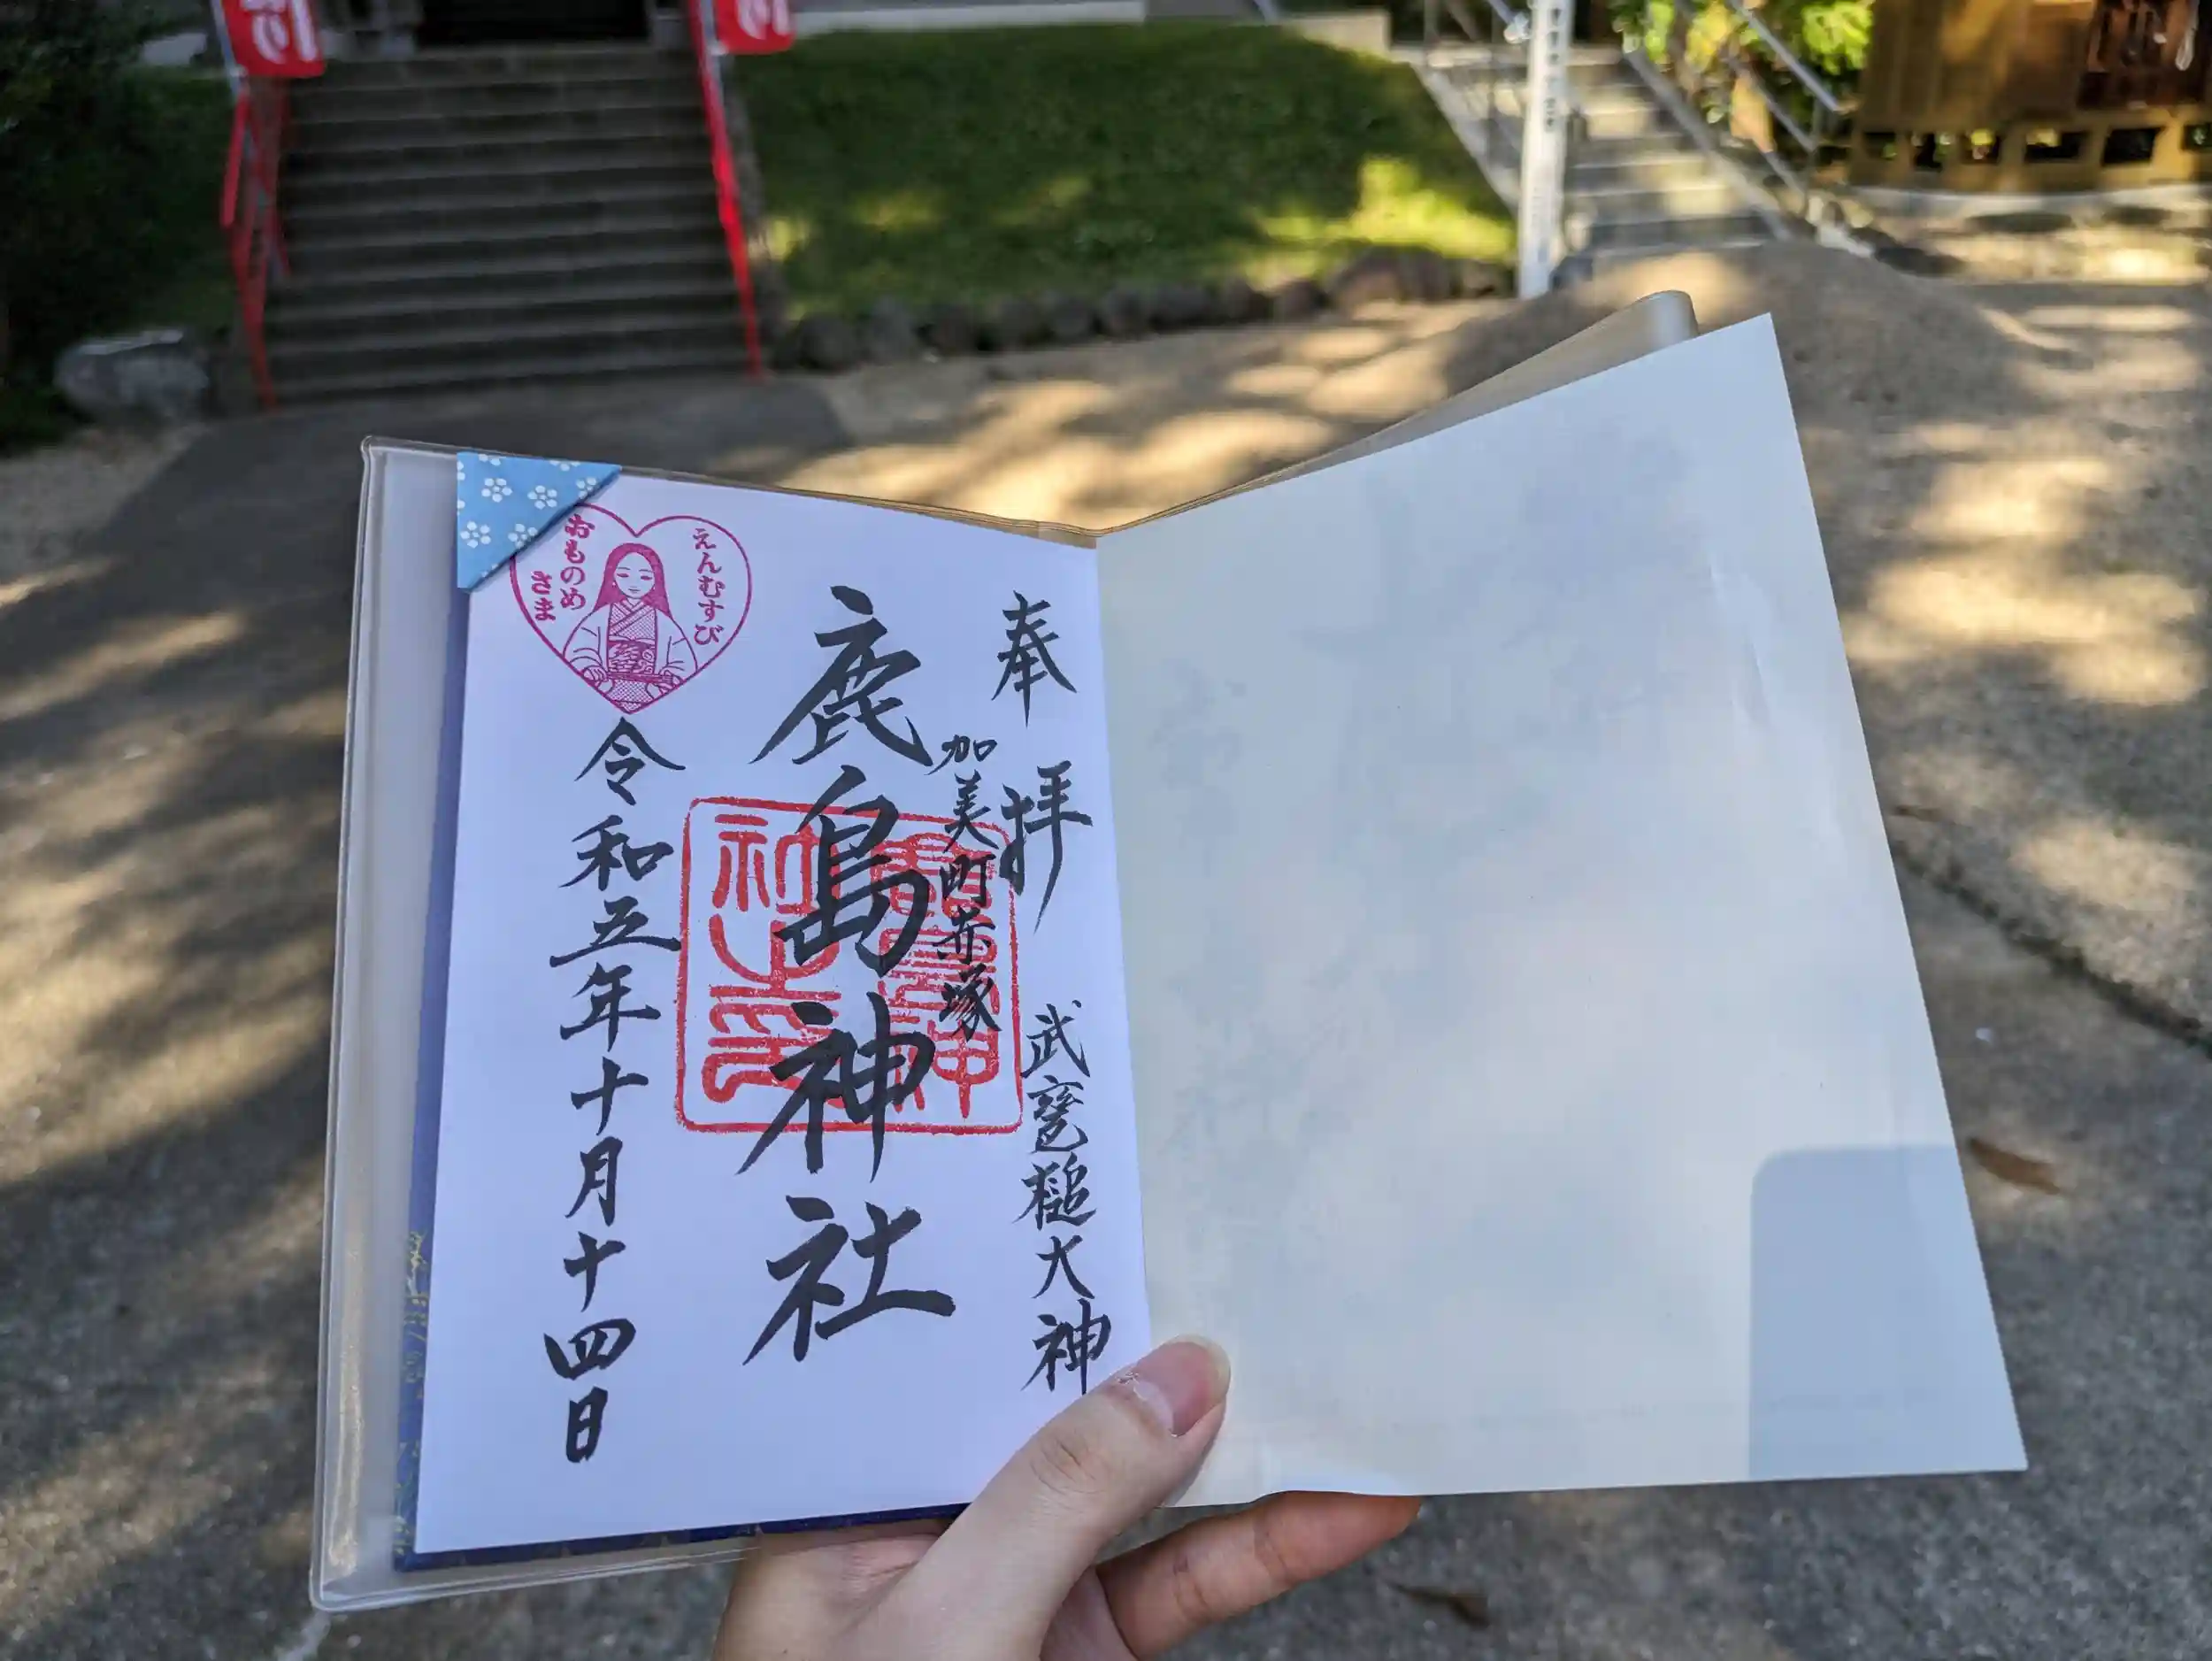 奉拝
武甕槌大神
加美町赤塚
鹿島神社
令和五年十月十四日
えんむすび
おものめ
さま